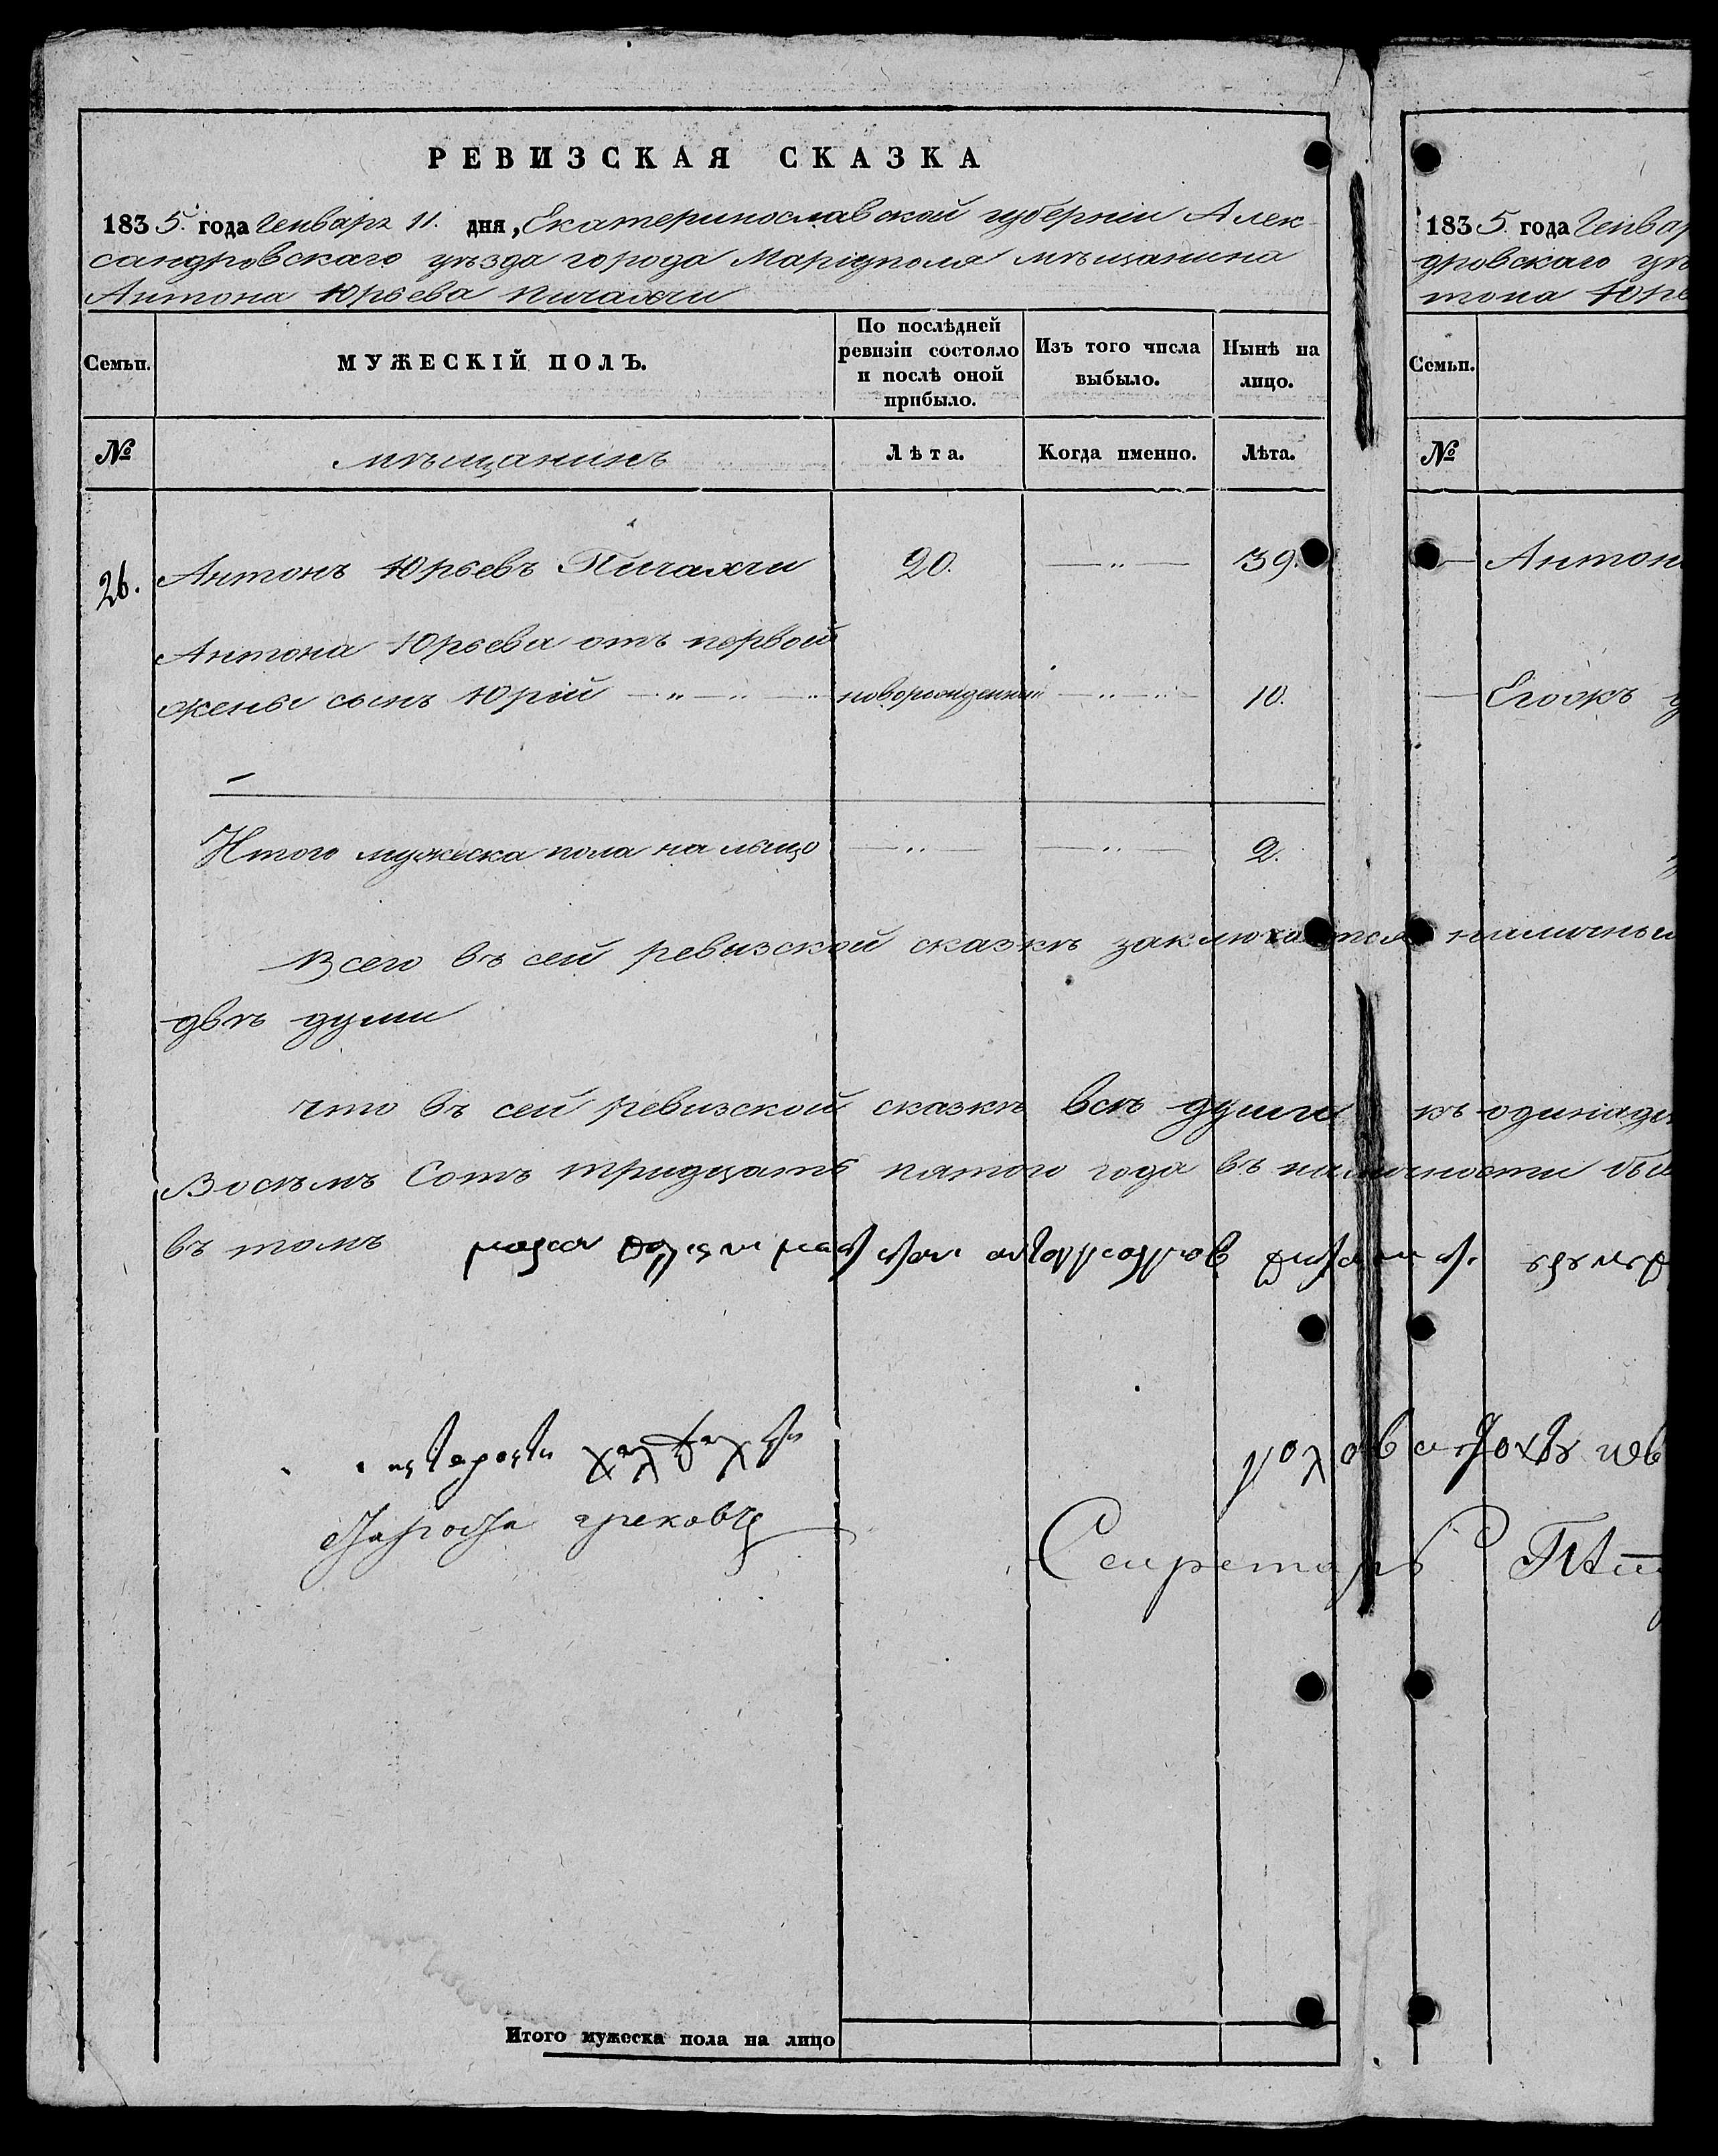 РЕВИЗСКАЯ СКАЗКА
1835 года Генваря 11. дня, Екатеринославской губерніи Алек-
сандровскаго уѣзда города Маріуполя мѣщанина
Антона Юрьева Пичахчи
Семьи.
МУЖЕСКІЙ ПОЛЪ.
По послѣдней ревизіи состояло и послѣ оной прибыло.
Изъ того числа выбыло.
Нынѣ на лицо.
№
мѣщанинъ
Лѣта.
Когда именно.
Лѣта.
26. Антонъ Юрьевъ Пичахчи 20. —"— 39.
Антона Юрьева отъ первой
жены сынъ Юрій —"—"—" новорожденный —"—"— 10.
Итого мужеска пола на лицо —"— —"— 2.
Всего въ сей ревизской сказкѣ заключается наличныи
двѣ души
что въ сей ревизской сказкѣ всѣ души къ одинадц
Восѣмъ Сотъ тридцать пятого года въ наличности был
въ томъ
староста грековъ
Секретарь
Итого мужеска пола на лицо
1835 года Генвар
дровскаго уѣ
тона Юрь
Семьи.
№
— Антон
— Егожъ